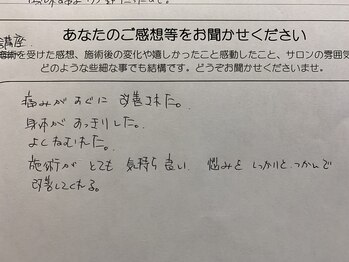 あなたのご感想等をお聞かせください
講座
施術を受けた感想、施術後の変化や嬉しかったこと感動したこと、サロンの雰囲気
どのような些細な事でも結構です。どうぞお聞かせくださいませ。
痛みがすぐに改善された。
身体がすっきりした。
よくねむれた。
施術がとても気持ち良い 悩みをしっかりとつかんで
改善してくれる。